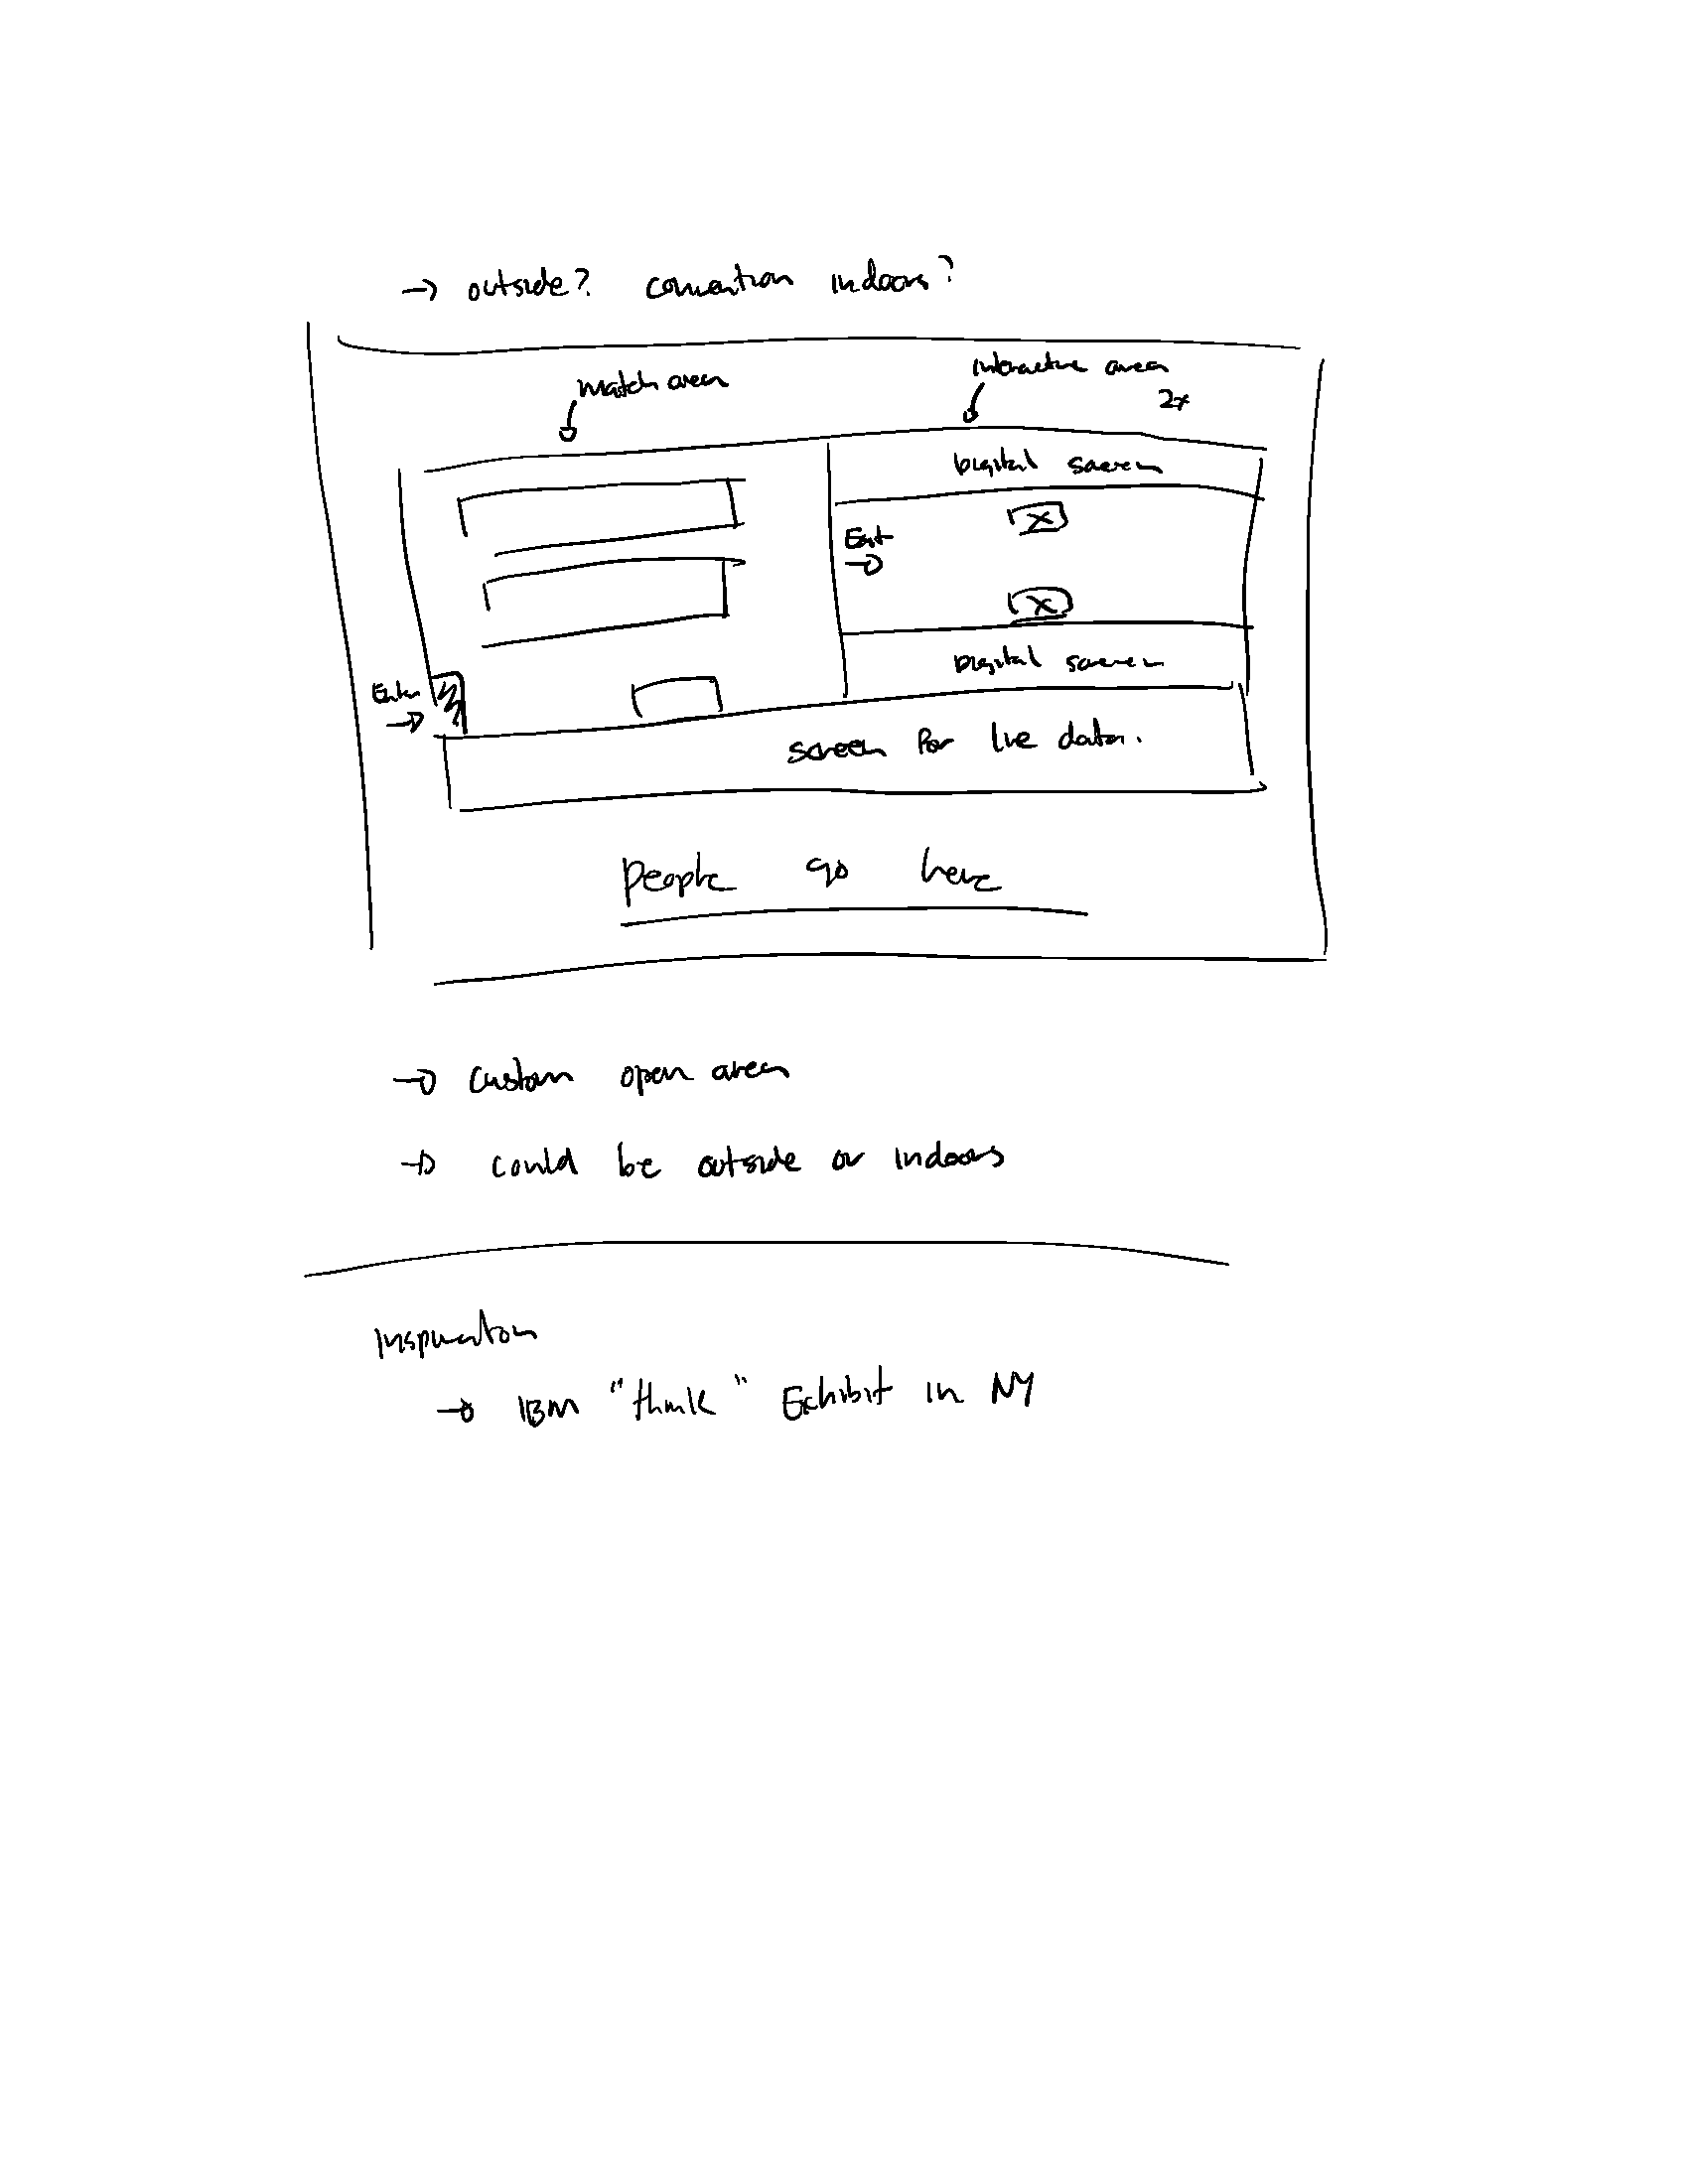 → outside? convention indoors?
match area
interactive area
2x
Digital screen
Exit
→
X
X
Digital screen
Enter
→
screen for live data.
people go here
→ custom open area
→ could be outside or indoors
Inspiration
→ IBM "think" Exhibit in NY